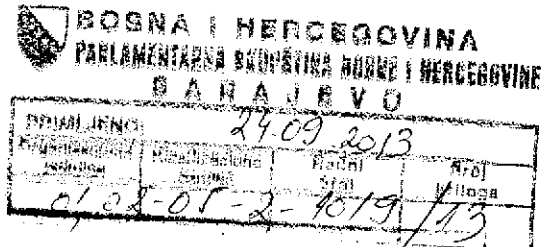 BOSNA I HERCEGOVINA
PARLAMENTARNA SKUPŠTINA BOSNE I HERCEGOVINE
SARAJEVO
PRIMLJENO: 24-09-2013
Organizaciona jedinica Klasifikaciona oznaka Redni broj Broj priloga
01,02-05-2-1019/13